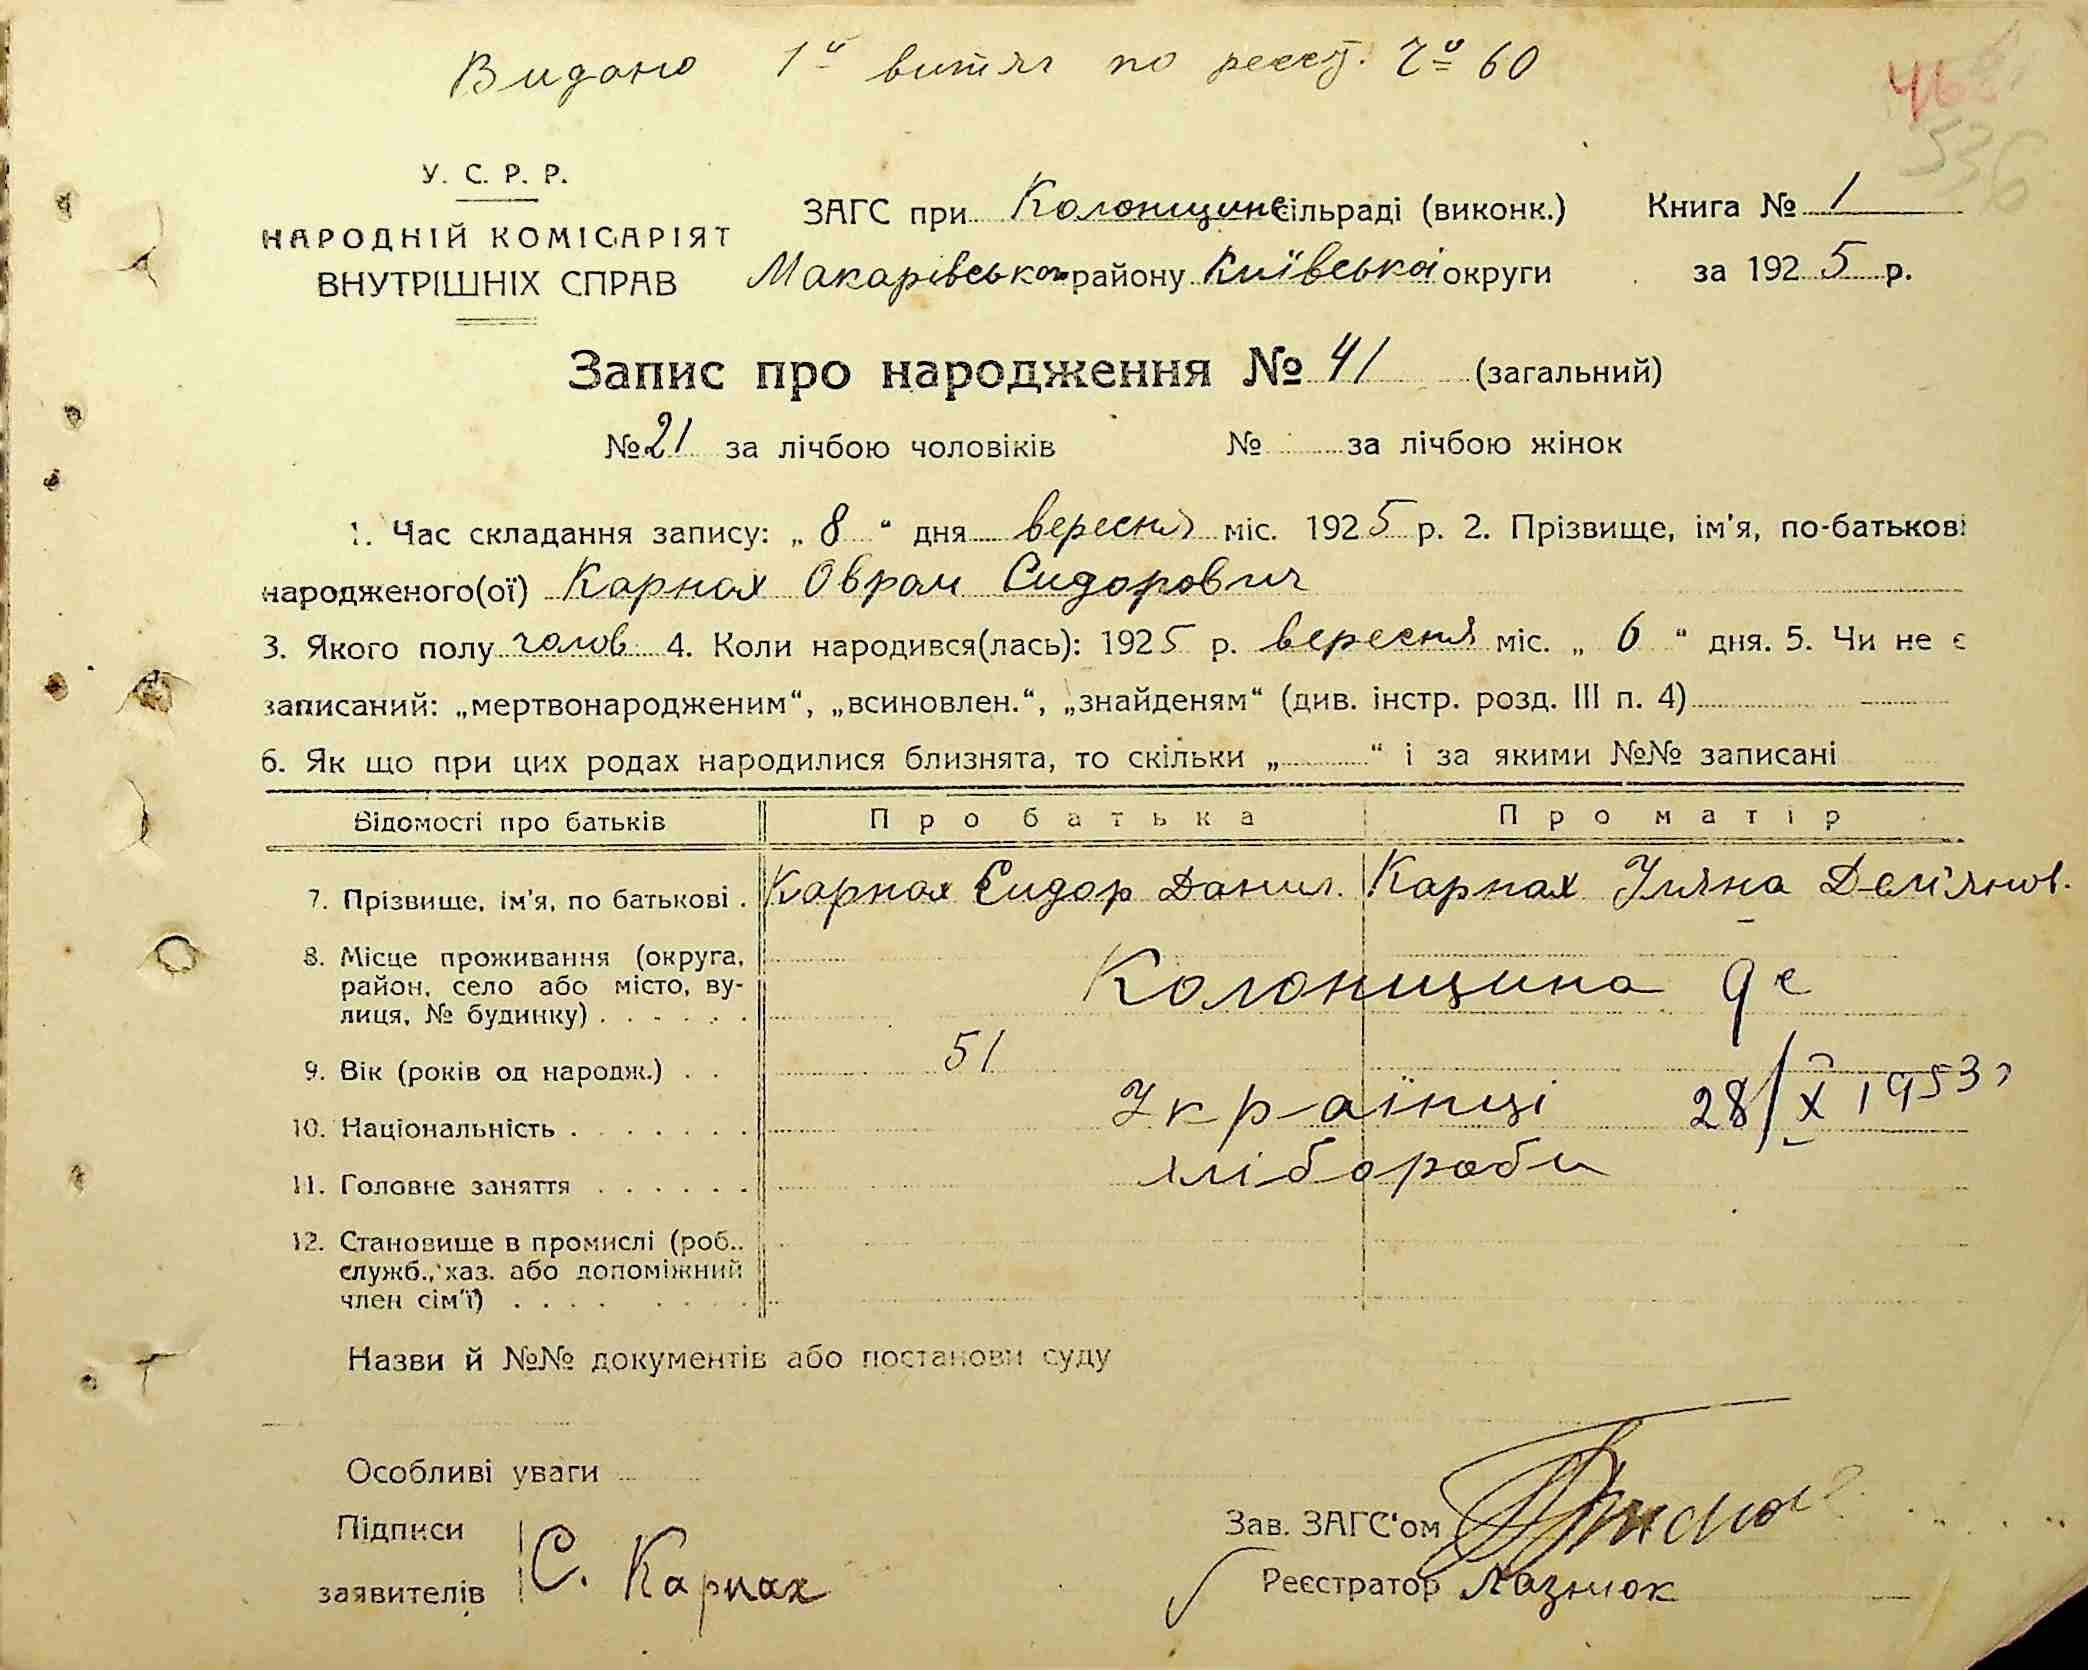 Видано 1й витяг по реєст. Ч° 60
46
536
У. С. Р. Р.
НАРОДНІЙ КОМІСАРІЯТ
ВНУТРІШНІХ СПРАВ
ЗАГС при Колонщине сільраді (виконк.)
Макарівського району Київської округи
Книга № 1
за 1925 р.
Запис про народження № 41 (загальний)
№ 21 за лічбою чоловіків № за лічбою жінок
1. Час складання запису: „ 8 “ дня вересня міс. 1925 р. 2. Прізвище, ім'я, по-батькові
народженого(ої) Карпах Оврам Сидорович
3. Якого полу чолов 4. Коли народився(лась): 1925 р. вересня міс. „ 6 “ дня. 5. Чи не є
записаний: „мертвонародженим“, „всиновлен.“, „знайденям“ (див. інстр. розд. III п. 4)
6. Як що при цих родах народилися близнята, то скільки „ “ і за якими №№ записані
Відомості про батьків Про батька Про матір
7. Прізвище, ім'я, по батькові . Карпах Сидор Данил. Карпах Уляна Дем'янов.
8. Місце проживання (округа,
район, село або місто, ву-
лиця, № будинку) . . . . . .
Колонщина
9. Вік (років од народж.) . . 51
10. Національність . . . . . . . Українці 28/X 1953
11. Головне заняття . . . . . . хлібороби
12. Становище в промислі (роб.,
служб., хаз. або допоміжний
член сім'ї) . . . . . . . .
Назви й №№ документів або постанови суду
Особливі уваги
Підписи
заявителів
С. Карпах
Зав. ЗАГС'ом
Реєстратор Лазнюк